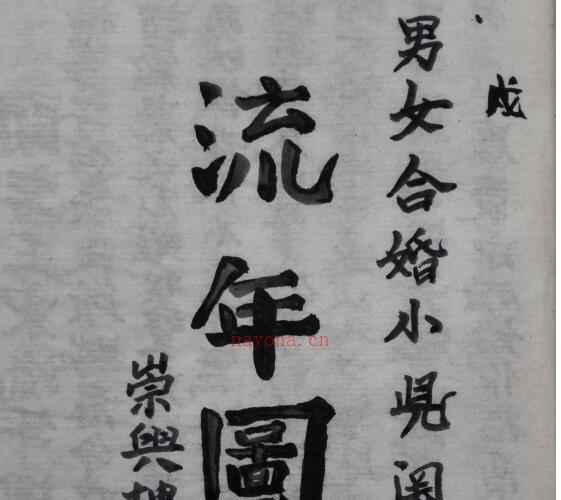 戌
男女合婚小児
流年圖
崇興
nayona.cn